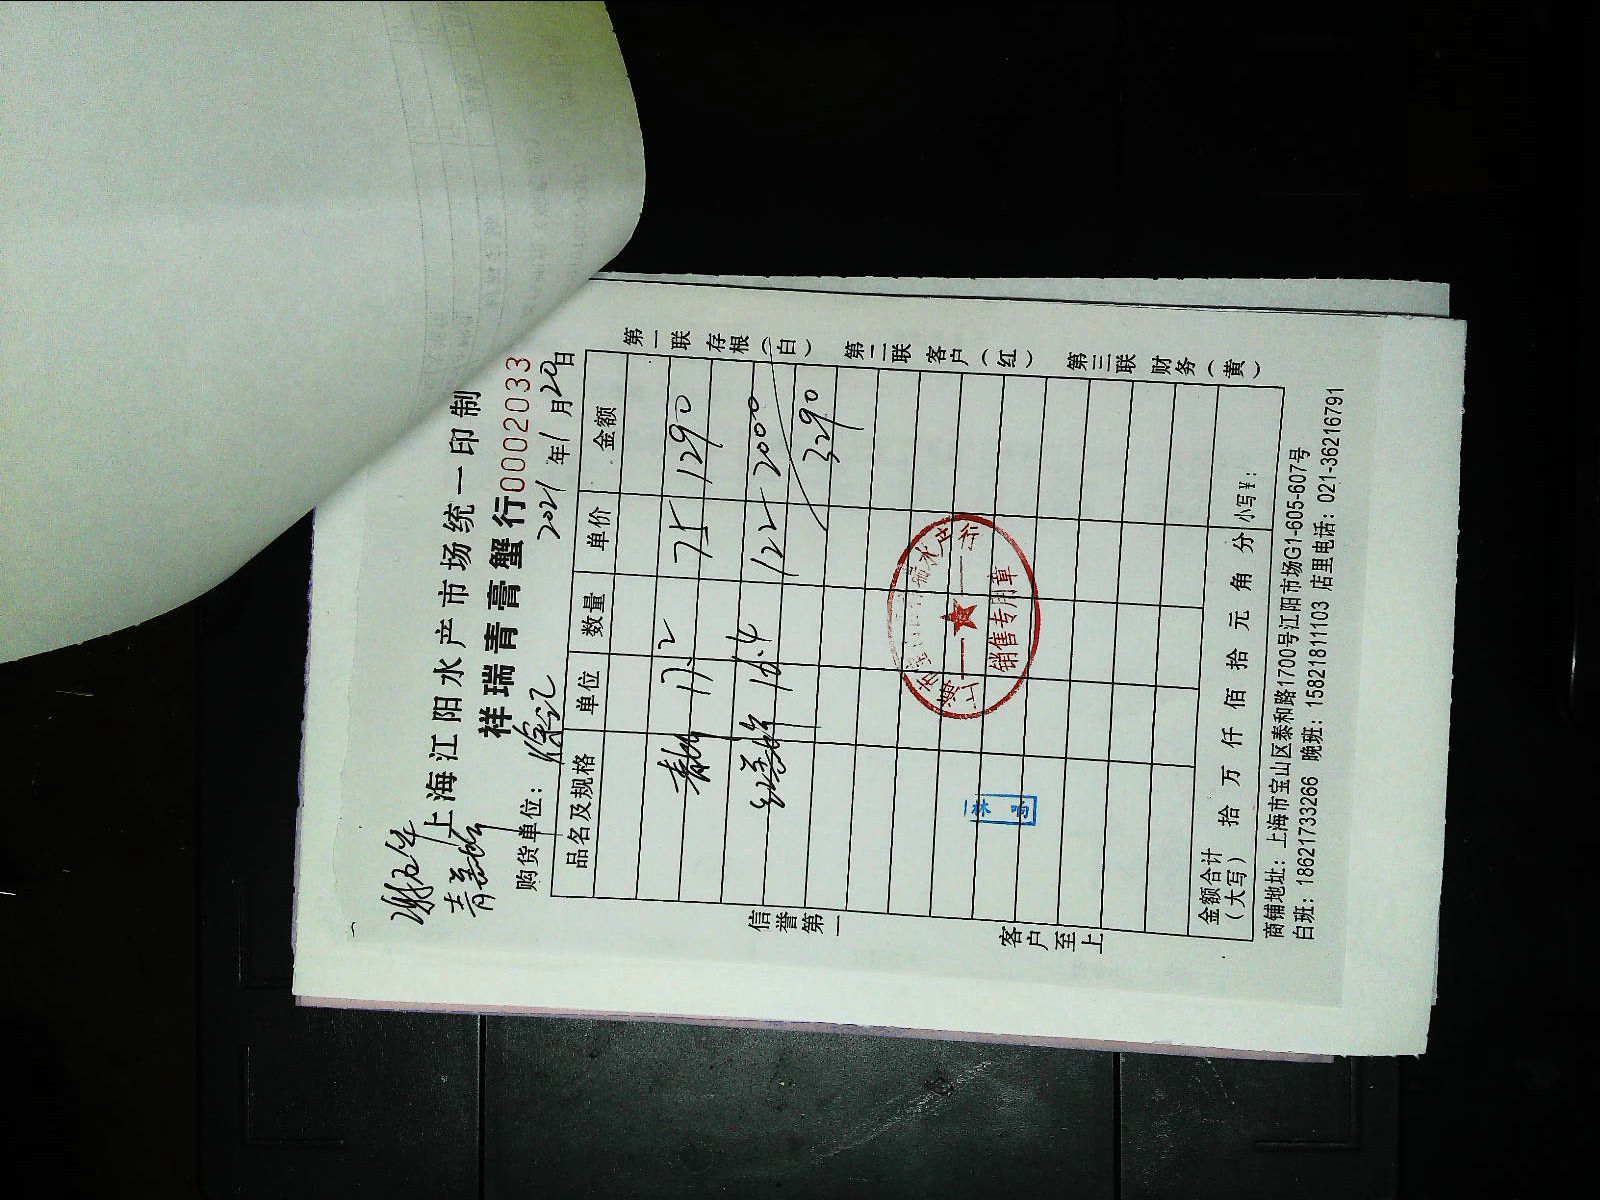 上海江阳水产市场统一印制
祥瑞青膏蟹行 0002033
购货单位：徐记 2021年1月20日
品名及规格 单位 数量 单价 金额
青 17.2 75 1290
16.4 122 2000
3290
金额合计（大写） 拾 万 仟 佰 拾 元 角 分 小写￥：
商铺地址：上海市宝山区泰和路1700号江阳市场G1-605-607号
白班：18621733266 晚班：15821811103 店里电话：021-36216791
第一联 存根（白） 第二联 客户（红） 第三联 财务（黄）
信誉第一 客户至上
销售专用章